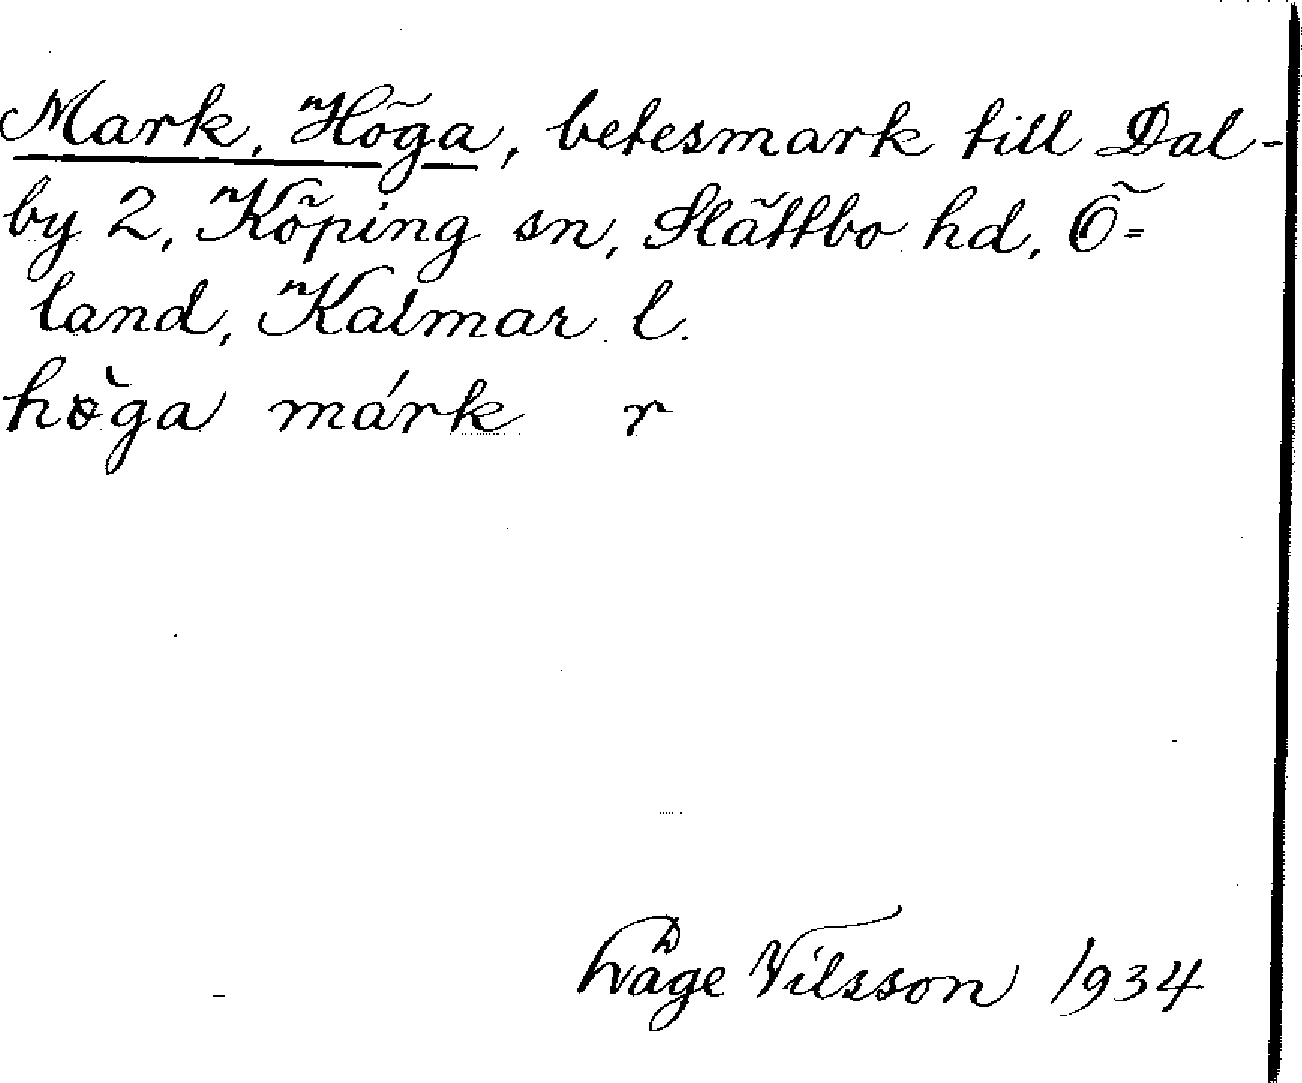 Mark, Höga, betesmark till Dal-
by 2, Köping sn, Slättbo hd, Ö=
land, Kalmar l.
hö̀ga márk r
Nilsson 1934